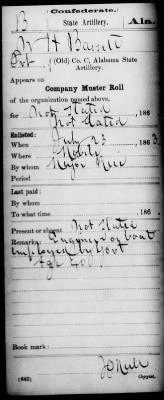 Confederate.
B State Artillery. Ala.
W H Bassett
Pvt, (Old) Co. C, Alabama State
Artillery.
Appears on
Company Muster Roll
of the organization named above,
for Not Stated, 186
Not Stated
Enlisted:
When July 23, 186 3
Where Mobile
By whom Major
Period
Last paid:
By whom
To what time, 186
Present or absent Not Stated
Remarks: Engineer on boat
employed by Govt
Age
Book mark:
(642) Copyist.